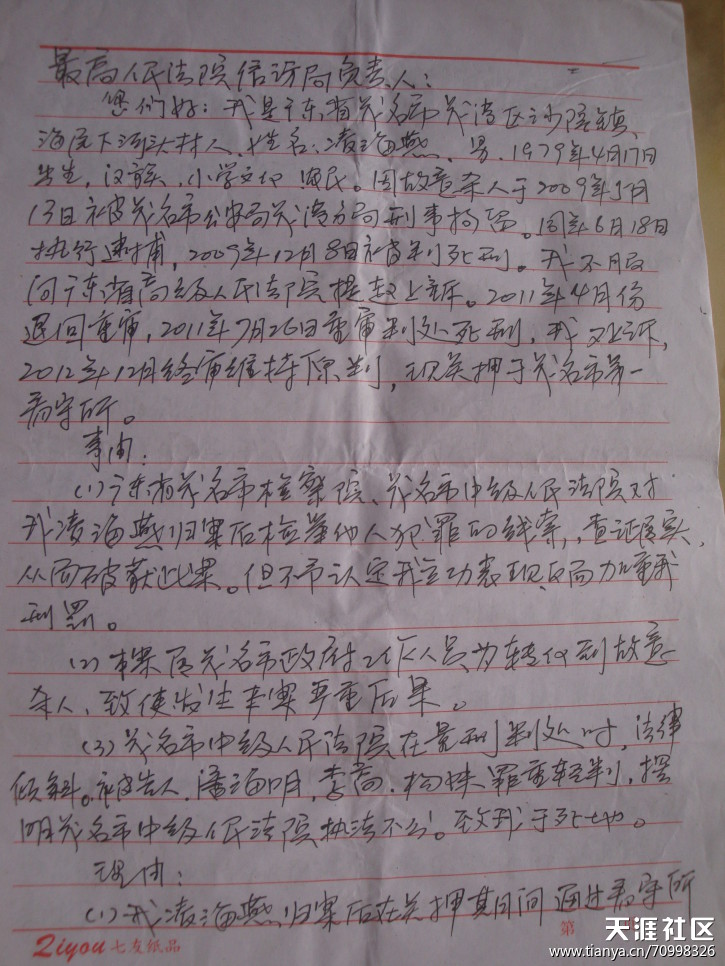 最高人民法院信访局负责人：
您们好：我是广东省茂名市茂港区沙院镇
海尾下河头村人，姓名：凌海燕、男、1979年4月17日
出生，汉族、小学文化 农民。因故意杀人于2009年5月
13日被茂名市公安局茂港分局刑事拘留。同年6月18日
执行逮捕，2009年12月8日被判死刑。我不服
向广东省高级人民法院提起上诉。2011年4月份
退回重审，2011年7月26日重审判处死刑，我又上诉，
2012年12月终审维持原判，现关押于茂名市第一
看守所。
事由：
(1)广东省茂名市检察院、茂名市中级人民法院对
我凌海燕归案后检举他人犯罪的线索，查证属实，
从而破获此案。但不予认定我立功表现反而加重我
刑罚。
(2)本案属茂名市政府工作人员为转位到故意
杀人、致使发生本案严重后果。
(3)茂名市中级人民法院在量刑判处时，法律
倾斜。被告人、潘海明，李、杨 罪重轻判，摆
明茂名市中级人民法院执法不公。致我于死地。
理由：
(1)我凌海燕归案后在关押其间通过看守所
Qiyou 七友纸品
第
天涯社区
www.tianya.cn/70998326